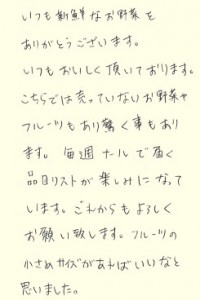 いつも新鮮なお野菜を
ありがとうございます。
いつもおいしく頂いております。
こちらでは売っていないお野菜や
フルーツもあり驚く事もあり
ます。毎週メールで届く
品目リストが楽しみになって
います。これからもよろしく
お願い致します。フルーツの
小さめサイズがあればいいなと
思いました。